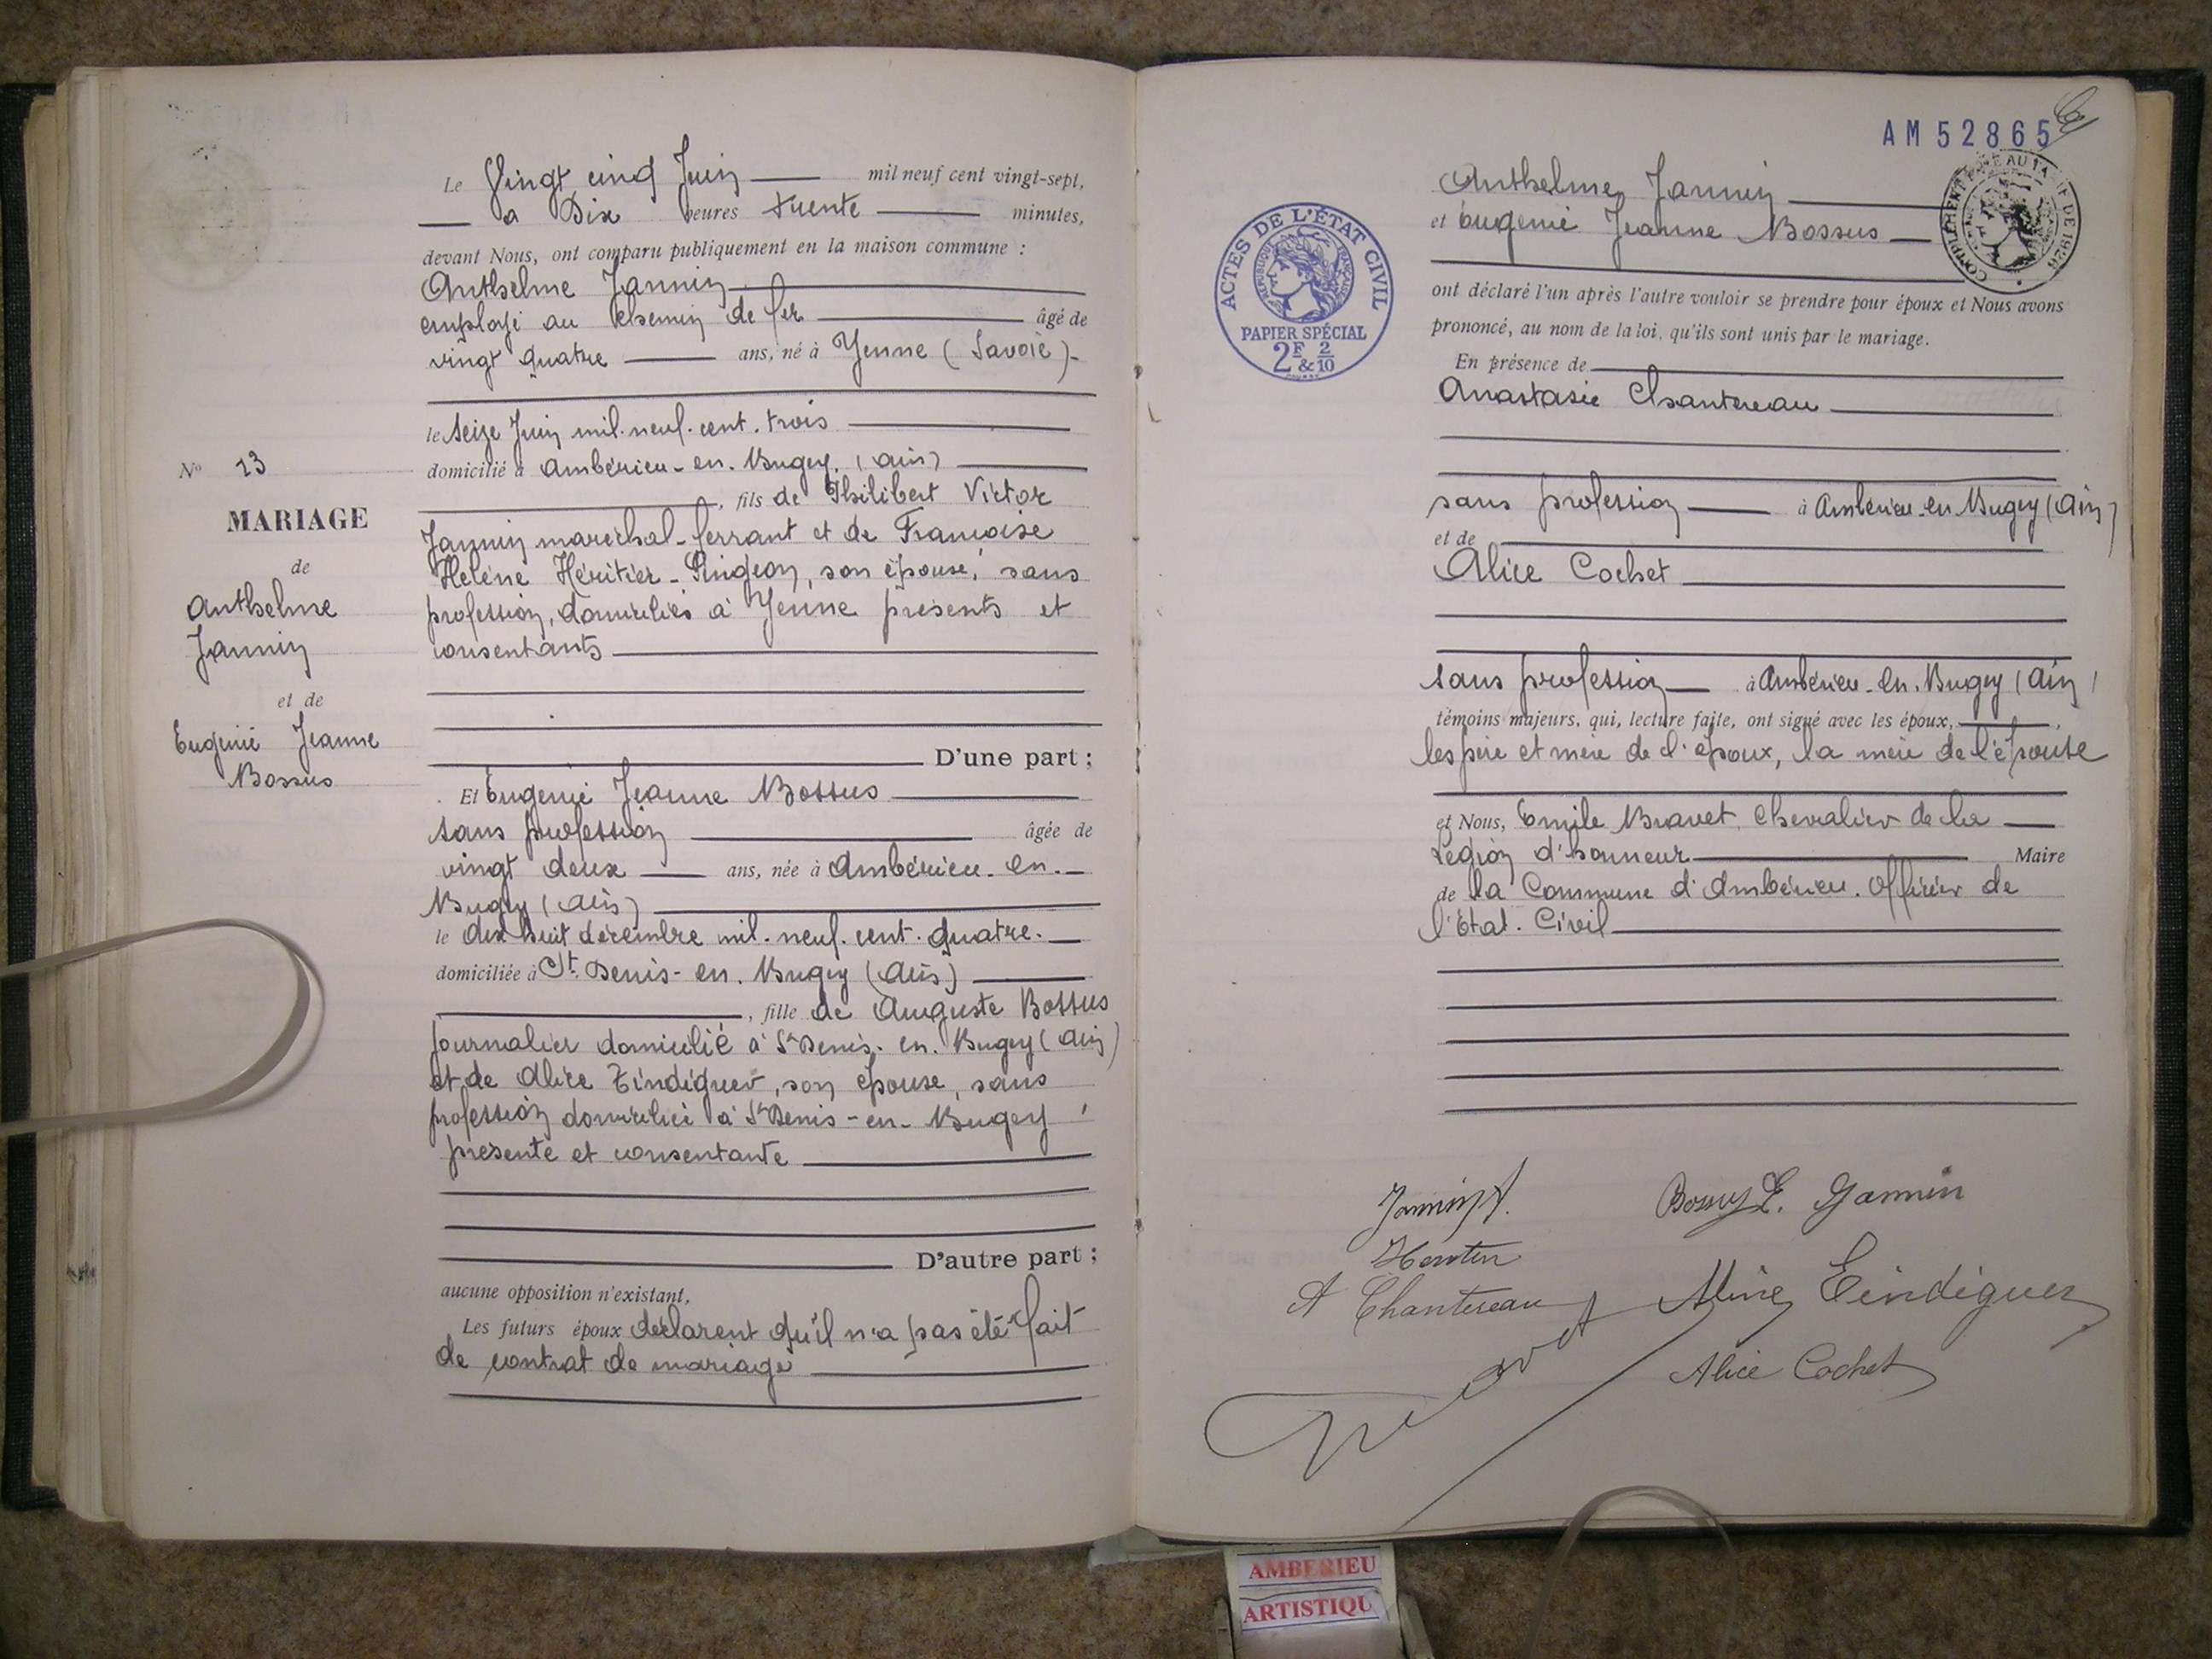 Le Vingt cinq Juin mil neuf cent vingt-sept,
à Dix heures trente minutes,
devant Nous, ont comparu publiquement en la maison commune :
Anthelme Jannin
employé au chemin de fer âgé de
vingt quatre ans, né à Yenne (Savoie)
le seize Juin mil. neuf. cent. trois
domicilié à Ambérieu-en-Bugey, (Ain)
, fils de Philibert Victor
Jannin maréchal-ferrant et de Françoise
Hélène Héritier-Pingeon, son épouse, sans
profession, domiciliés à Yenne présents et
consentants
D'une part ;
Et Eugénie Jeanne Bossus
sans profession âgée de
vingt deux ans, née à Ambérieu-en-
Bugey (Ain)
le dix huit décembre mil. neuf. cent. quatre.
domiciliée à St. Denis-en-Bugey (Ain)
, fille de Auguste Bossus
journalier domicilié à St Denis-en-Bugey (Ain)
et de Alice Tindiguer, son épouse, sans
profession domiciliée à St Denis-en-Bugey,
présente et consentante
D'autre part ;
aucune opposition n'existant,
Les futurs époux déclarent qu'il n'a pas été fait
de contrat de mariage
No 23
MARIAGE
de
Anthelme
Jannin
et de
Eugénie Jeanne
Bossus
AM 52865
COMPLÉMENT AU TARIF DE 1926
ACTES DE L'ÉTAT CIVIL
RÉPUBLIQUE FRANÇAISE
PAPIER SPÉCIAL
2F & 2/10
Anthelme Jannin
et Eugénie Jeanne Bossus
ont déclaré l'un après l'autre vouloir se prendre pour époux et Nous avons
prononcé, au nom de la loi, qu'ils sont unis par le mariage.
En présence de
Anastasie Chantereau
sans profession à Ambérieu-en-Bugey (Ain)
et de
Alice Cochet
sans profession à Ambérieu-en-Bugey (Ain)
témoins majeurs, qui, lecture faite, ont signé avec les époux,
les père et mère de l'époux, la mère de l'épouse
et Nous, Emile Bravet, Chevalier de la
Légion d'honneur Maire
de la Commune d'Ambérieu. Officier de
l'Etat. Civil
Jannin A. Bossus E. Jannin
A Chantereau Tindiguer
Alice Cochet
AMBERIEU
ARTISTIQU